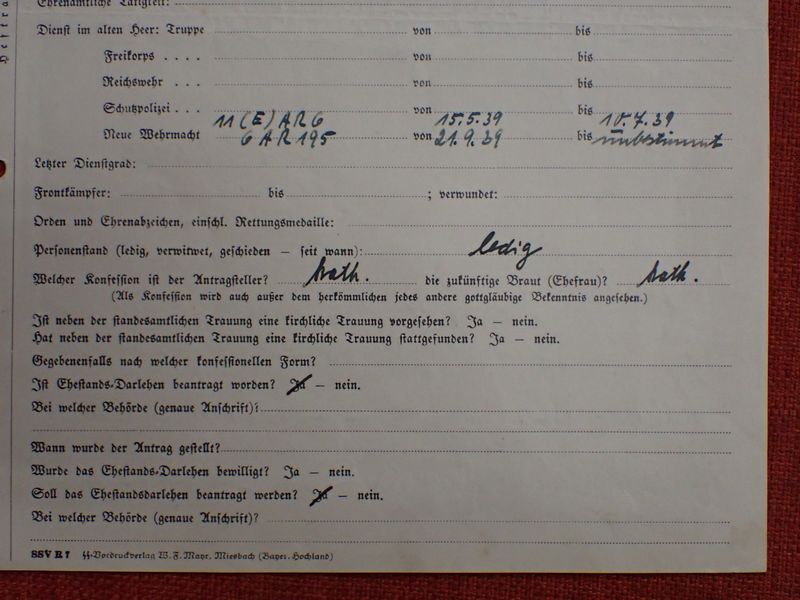 Ehrenamtliche Tätigkeit:
Dienst im alten Heer: Truppe von bis
Freikorps . . . . von bis
Reichswehr . . . von bis
Schutzpolizei . . . von bis
11 (E) AR 6 15.5.39 10.7.39
Neue Wehrmacht 6 AR 195 von 21.9.39 bis unbestimmt
Letzter Dienstgrad:
Frontkämpfer: bis ; verwundet:
Orden und Ehrenabzeichen, einschl. Rettungsmedaille:
Personenstand (ledig, verwitwet, geschieden — seit wann): ledig
Welcher Konfession ist der Antragsteller? kath. die zukünftige Braut (Ehefrau)? kath.
(Als Konfession wird auch außer dem herkömmlichen jedes andere gottgläubige Bekenntnis angesehen.)
Ist neben der standesamtlichen Trauung eine kirchliche Trauung vorgesehen? Ja — nein.
Hat neben der standesamtlichen Trauung eine kirchliche Trauung stattgefunden? Ja — nein.
Gegebenenfalls nach welcher konfessionellen Form?
Ist Ehestands-Darlehen beantragt worden? Ja — nein.
Bei welcher Behörde (genaue Anschrift)?
Wann wurde der Antrag gestellt?
Wurde das Ehestands-Darlehen bewilligt? Ja — nein.
Soll das Ehestandsdarlehen beantragt werden? Ja — nein.
Bei welcher Behörde (genaue Anschrift)?
SSV R 7 SS-Vordruckverlag W. F. Mayr, Miesbach (Bayer. Hochland)